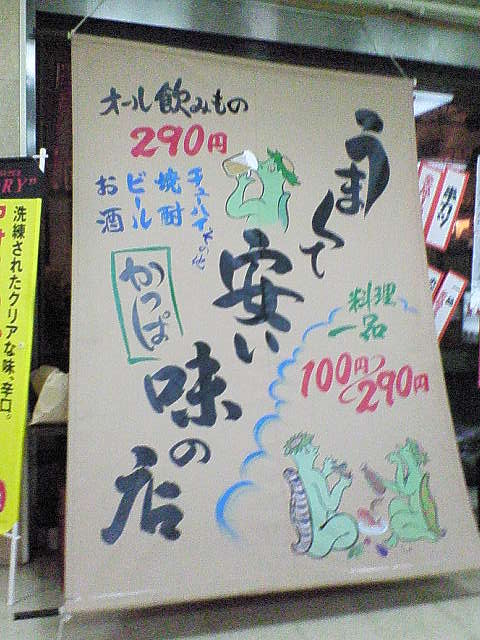 オール飲みもの
290円
チューハイその他
焼酎
ビール
お酒
うまくて
安い
味の店
かっぱ
料理
一品
100円〜290円
洗練されたクリアな味、辛口。
RY"